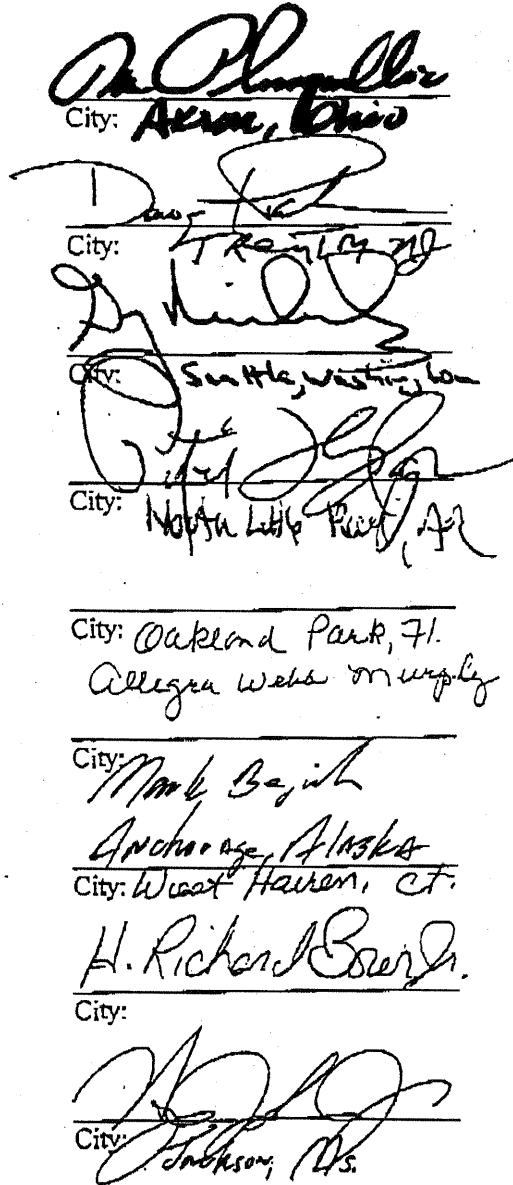 City: Akron, Ohio
Doug
City: Trenton NJ
City: Seattle, Washington
City: North Little Rock, AR
City: Oakland Park, Fl.
Allegra Webb Murphy
City:
Mark Begich
Anchorage, Alaska
City: West Haven, Ct.
H. Richard Borer Jr.
City:
City: Jackson, Ms.